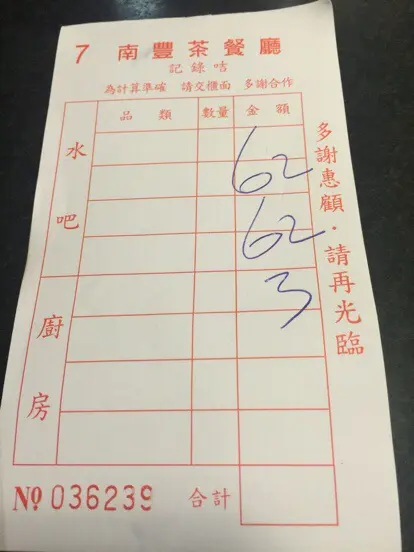 7 南豐茶餐廳
記錄咭
為計算準確 請交櫃面 多謝合作
品類 數量 金額
水吧
62
62
3
廚房
多謝惠顧·請再光臨
№ 036239 合計